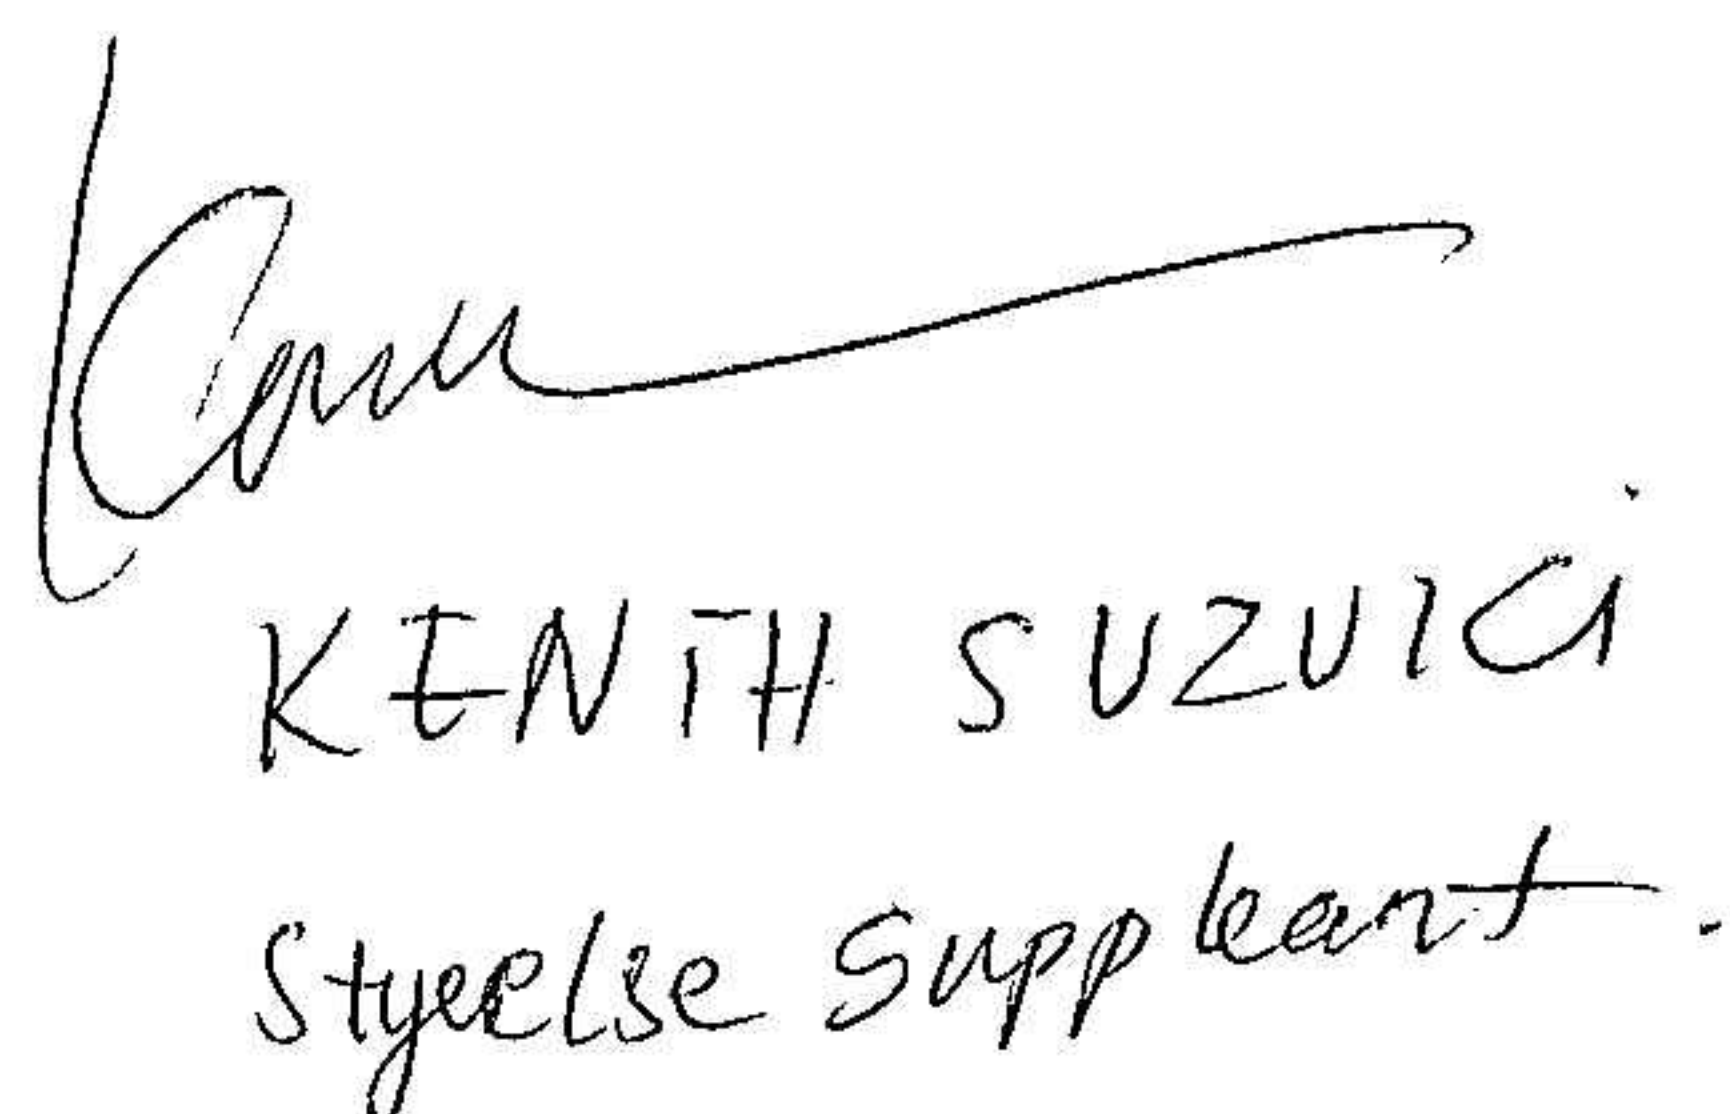 KENTH SUZUICI
Styrelse Suppleant.